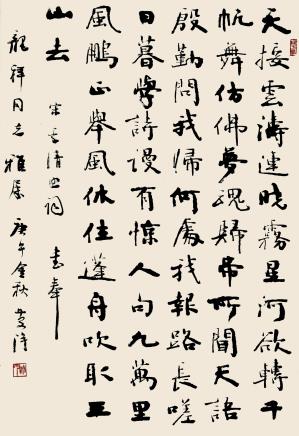 天接雲濤連曉霧星河欲轉千
帆舞仿佛夢魂歸帝所聞天語
殷勤問我歸何處我報路長嗟
日暮學詩謾有驚人句九萬里
風鵬正舉風休住蓬舟吹取三
山去 宋李清照詞 書奉
龍祥同志雅屬 庚午金秋